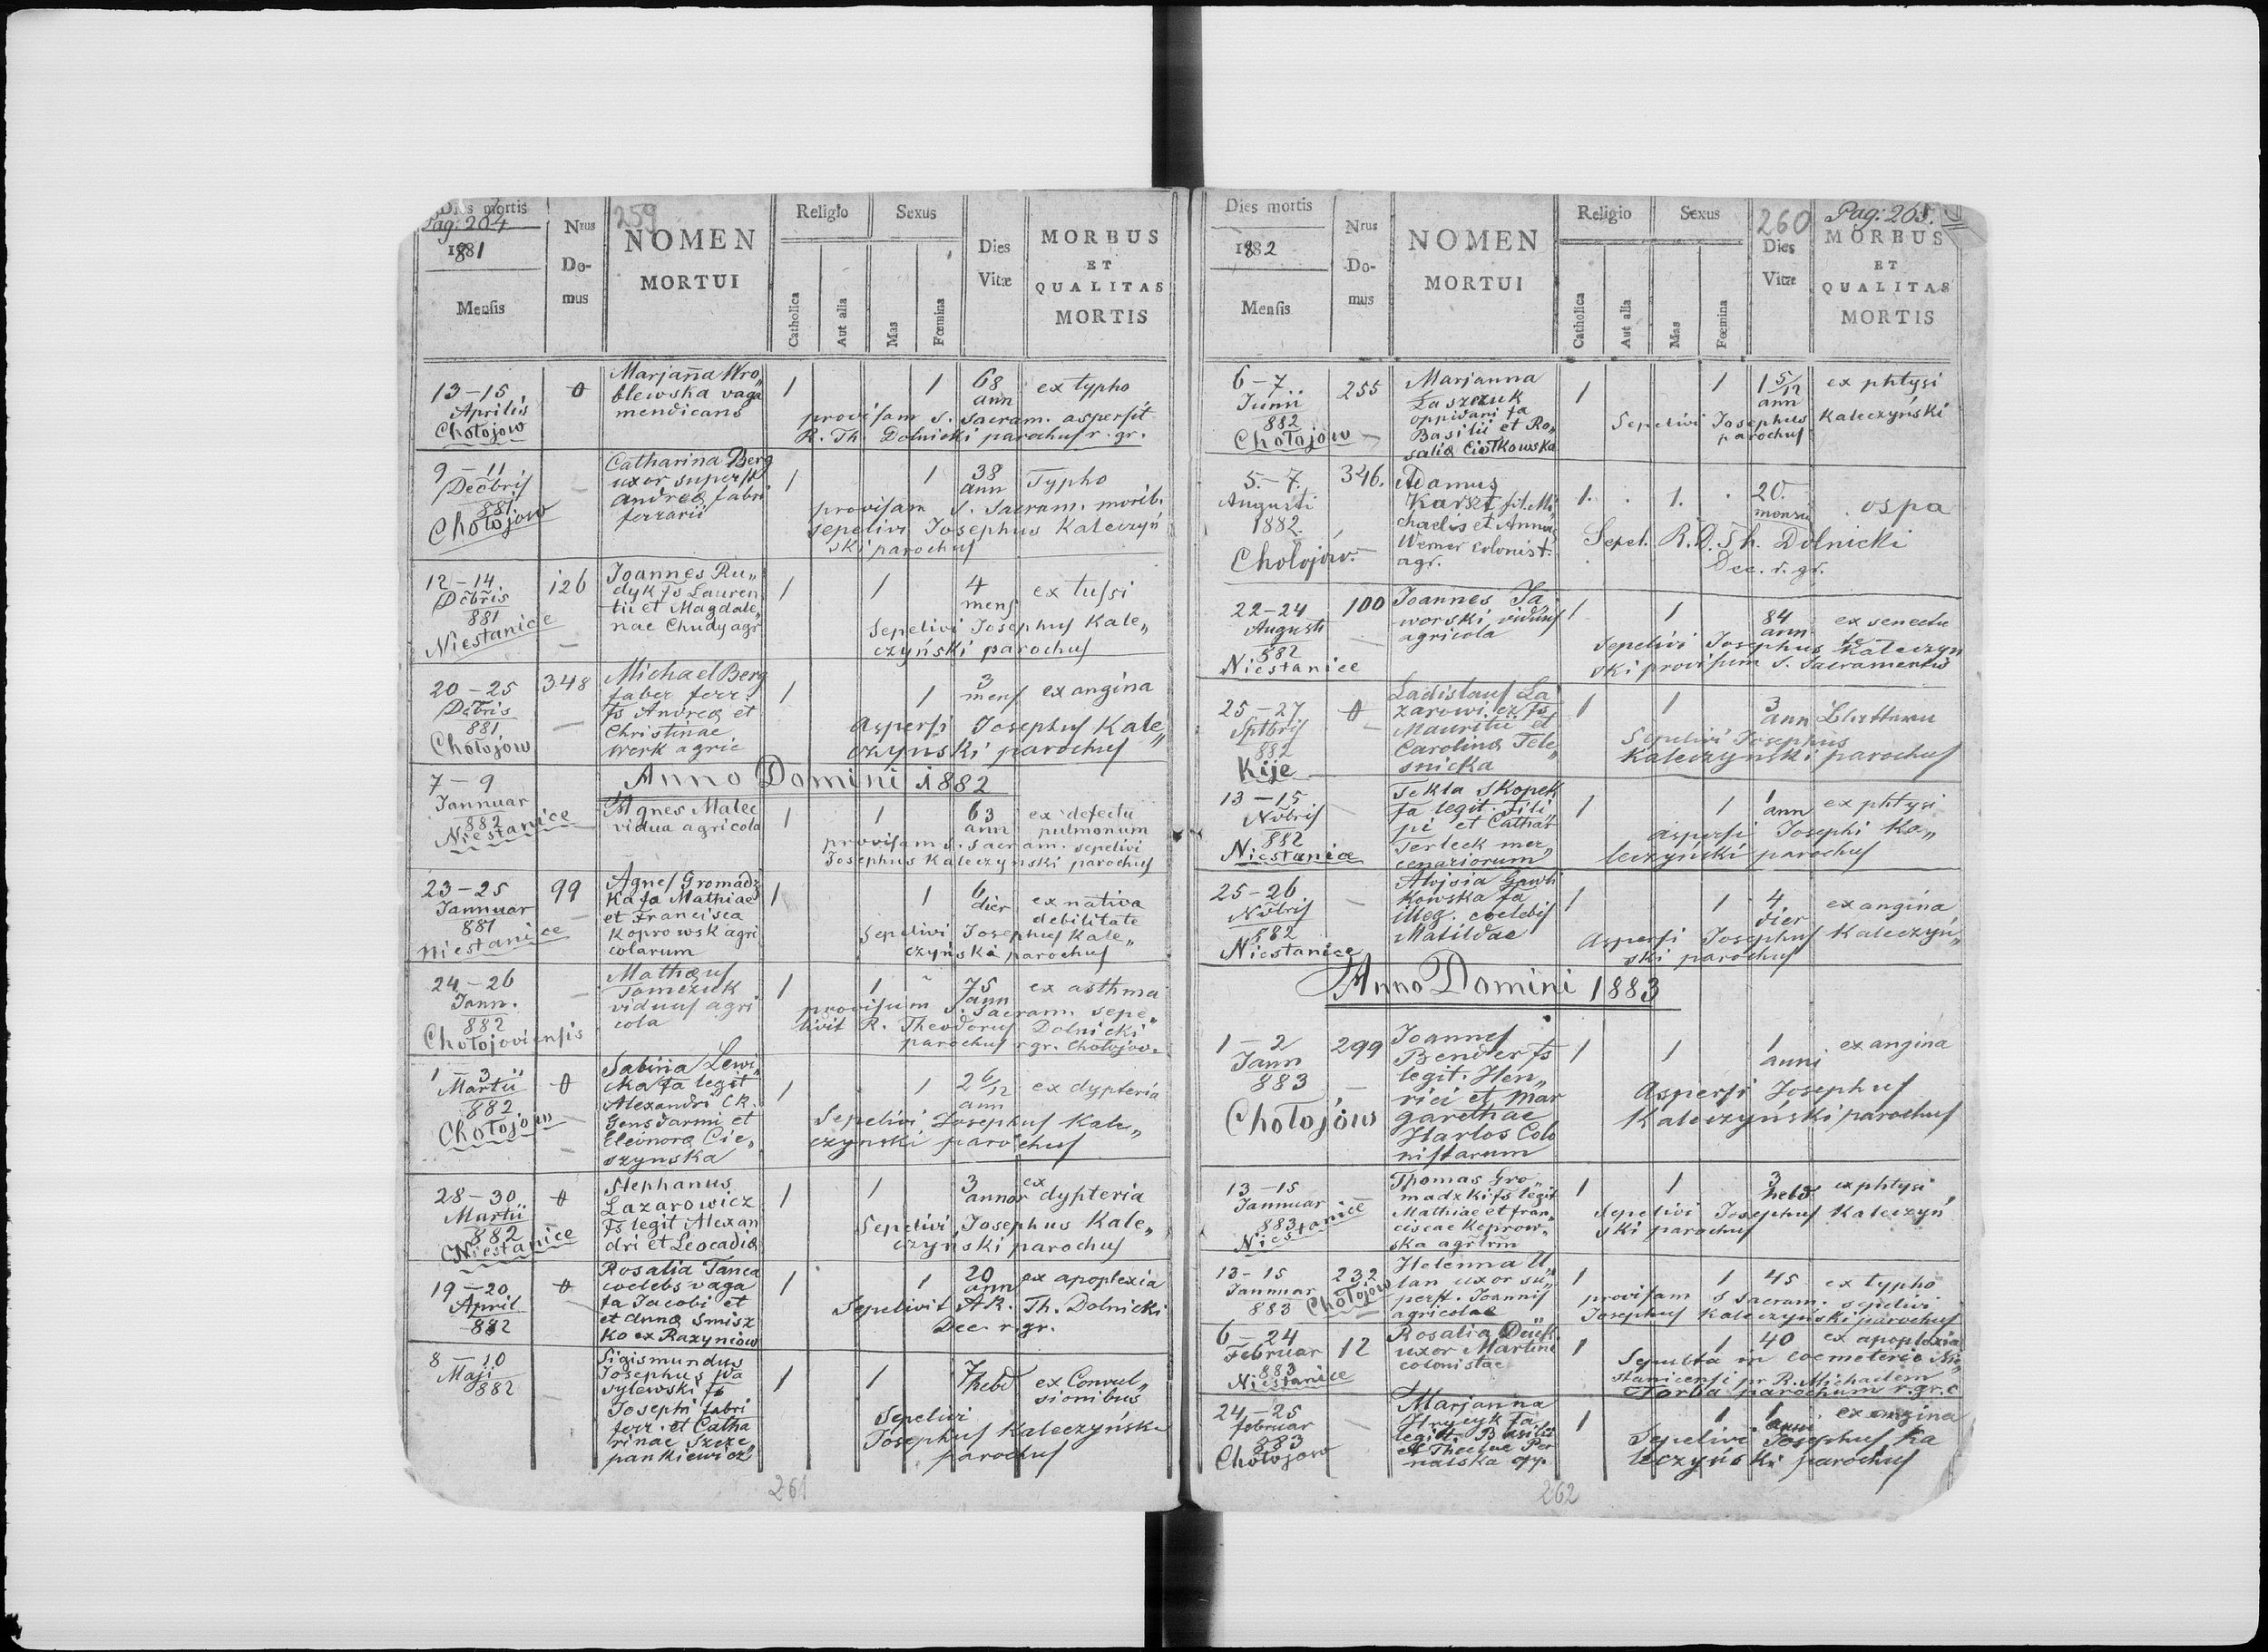 Dies mortis
Pag: 204
1881
Mensis
Nrus
Do-
mus
259
NOMEN
MORTUI
Religio
Sexus
Catholica
Aut alia
Mas
Fœmina
Dies
Vitæ
MORBUS
ET
QUALITAS
MORTIS
13-15
Aprilis
Chołojow
0
Marjanna Wro„
blewska vaga
mendicans
1
1
68
ann
ex typho
provisam s. Sacram. aspersit
R. Th. Dolnicki parochus r. gr.
9-11
Decbris
881
Chołojow
Catharina Berg
uxor superst
Andreæ fabri
ferrarii
1
1
38
ann
Typho
provisam s. Sacram. morib.
sepelivi Josephus Kaleczyń
ski parochus
12-14
Dcbris
881
Niestanice
126
Joannes Ru„
dyk fs Lauren
tii et Magdale„
nae Chudy agr
1
1
4
mens
ex tussi
Sepelivi Josephus Kale„
czyński parochus
20-25
Dcbris
881
Chołojow
348
Michael Berg
faber ferr.
fs Andreæ et
Christinae
Werk agric
1
1
3
mens
ex angina
Aspersi Josephus Kale„
czynski parochus
Anno Domini 1882
7-9
Jannuar
882
Niestanice
Agnes Malec
vidua agricola
1
1
63
ann
ex defectu
pulmonum
provisam s. sacram. sepelivi
Josephus Kaleczynski parochus
23-25
Jannuar
881
Niestanice
99
Agnes Gromadz
ka fa Mathiae
et Francisca
Koprowsk agri
colarum
1
1
6
dier
ex nativa
debilitate
Sepelivi Josephus Kale„
czyński parochus
24-26
Jann.
882
Chołojoviensis
Mathæus
Tomczuk
viduus agri
cola
1
1
75
ann
ex asthma
provisum s. Sacram. sepe„
livit R. Theodorus Dolnicki
parochus r gr. Chołojov.
1-3
Martii
882
Chołojow
0
Sabina Lewi„
cka fa legit
Alexandri CR.
Gensdarmi et
Eleonora Cie„
szynska
1
1
2 6/12
ann
ex dypteria
Sepelivi Josephus Kale„
czynski parochus
28-30
Martii
882
Niestanice
0
Stephanus
Lazarowicz
fs legit Alexan
dri et Leocadiæ
1
1
3
annor
ex
dypteria
Sepelivi Josephus Kale„
czyński parochus
19-20
April
882
0
Rosalia Tanca
coelebs vaga
fa Jacobi et
et Annæ Smisz
ko ex Razyniow
1
1
20
ann
ex apoplexia
Sepelivit AR. Th. Dolnicki
Dec. r. gr.
8-10
Maji
882
Sigismundus
Josephus
fs
Josephi fabri
ferr. et Catha
rinae Szcze„
pankiewicz
1
1
7
hebd
ex Convul„
sionibus
Sepelivi
Josephus Kaleczyński
parochus
261
Dies mortis
1882
Mensis
Nrus
Do-
mus
NOMEN
MORTUI
Religio
Sexus
Catholica
Aut alia
Mas
Fœmina
260
Dies
Vitæ
Pag: 265.
MORBUS
ET
QUALITAS
MORTIS
6-7
Junii
882
Chołojów
255
Marjanna
Łaszczuk
oppidani fa
Basilii et Ro„
saliæ Ciołkowska
1
1
1 5/12
ann
ex phtysi
Sepelivi Josephus Kaleczyński
parochus
5-7.
Augusti
1882
Chołojów.
346.
Adamus
Karszt fil. Mi„
chaelis et Annæ
Werner colonist.
agr.
1.
1.
20.
ospa
Sepel. R.D. Th. Dolnicki
Dec. r. gr.
22-24
Augusti
882
Niestanice
100
Joannes Ja„
worski viduus
agricola
1
1
84
ann
ex senectu
te
Sepelivi Josephus Kaleczyn
ski provisum s. Sacramentis
25-27
Sptbris
882
Kije
0
Ladislaus La„
zarowicz fs
Mauritii et
Carolinæ Tele„
snicka
1
1
3
ann
Sepelivi Josephus
Kaleczynski parochus
13-15
Nvbris
882
Niestanice
Tekla Skopek
fa legit. Fili
pi et Cathar
Terleck mer„
cenariorum
1
1
1
ann
ex phtysi
Aspersi Josephi Ka„
leczyński parochus
25-26
Nvbris
882
Niestanice
Alojsia Gawli
kowska fa
illeg. coelebis
Matildae
1
1
4
dier
ex angina
Aspersi Josephus Kaleczyń„
ski parochus
Anno Domini 1883
1-2
Jann
883
Chołojów
299
Joannes
Bender fs
legit. Hen„
rici et Mar
garethae
Harlos Colo
nistarum
1
1
1
anni
ex angina
Aspersi Josephus
Kaleczyński parochus
13-15
Jannuar
883
Niestanice
Thomas Gro„
madzki fs legit
Mathiae et Fran„
ciscae Koprow„
ska agrlrm
1
1
3
hebd
ex phtysi
Sepelivi Josephus Kaleczyń
ski parochus
13-15
Jannuar
883
Chołojow
232
Helenna U„
lan uxor su„
perst. Joannis
agricolae
1
1
45
ex typho
provisam s sacram. sepelivi
Josephus Kaleczyński parochus
6-24
Februar
883
Niestanice
12
Rosalia
uxor Martini
colonistae
1
1
40
ex apoplexia
Sepulta in coemeterio Nie„
stanicensi pr R. Michaelem
Torba parochum r. gr. c
24-25
februar
883
Chołojow
Marjanna
Hrycyk fa
legitt. Basilii
et Theclae Per
natska opp.
1
1
1
anni
ex angina
Sepelivi Josephus Ka
leczyński parochus
262